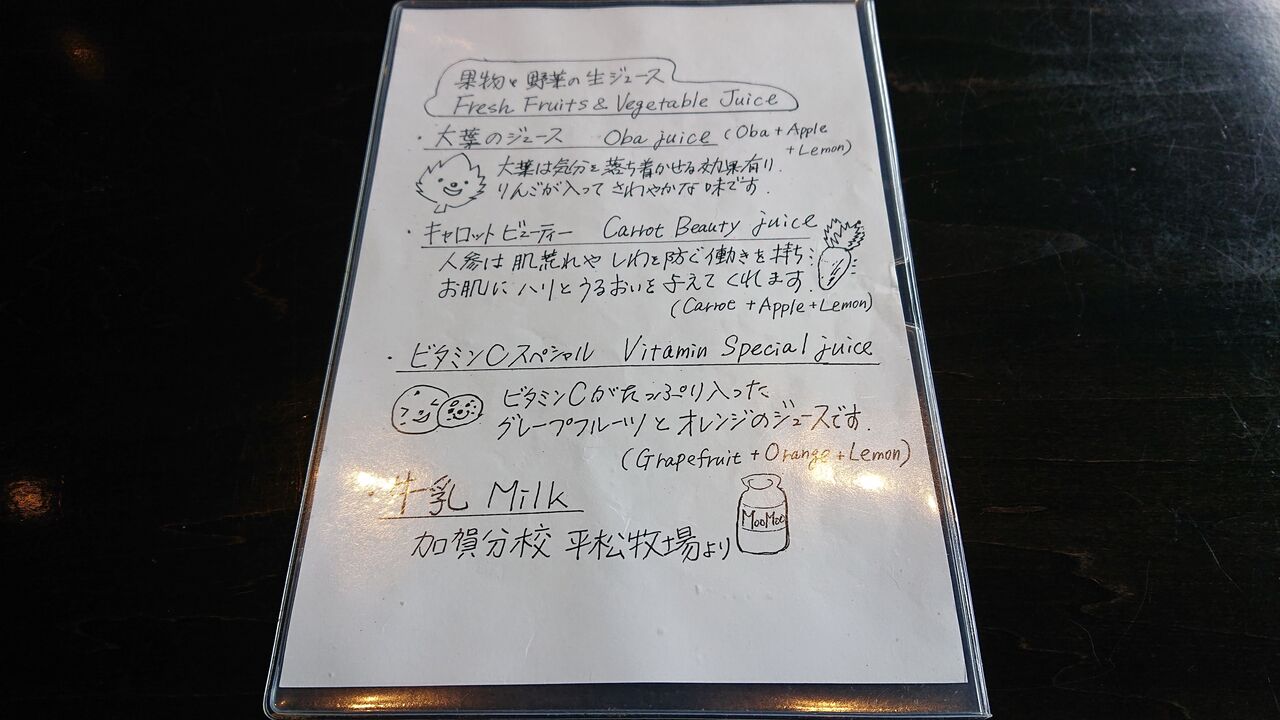 果物と野菜の生ジュース
Fresh Fruits & Vegetable Juice
・大葉のジュース Oba juice (Oba + Apple + Lemon)
大葉は気分を落ち着かせる効果有り.
りんごが入って さわやかな味です.
・キャロットビューティー Carrot Beauty juice
人参は肌荒れや しわを防ぐ働きを持ち
お肌に ハリとうるおいを与えてくれます.
(Carrot + Apple + Lemon)
・ビタミンCスペシャル Vitamin Special juice
ビタミンCがたっぷり入った
グレープフルーツと オレンジのジュースです.
(Grapefruit + Orange + Lemon)
・牛乳 Milk
MooMoo
加賀分校 平松牧場より